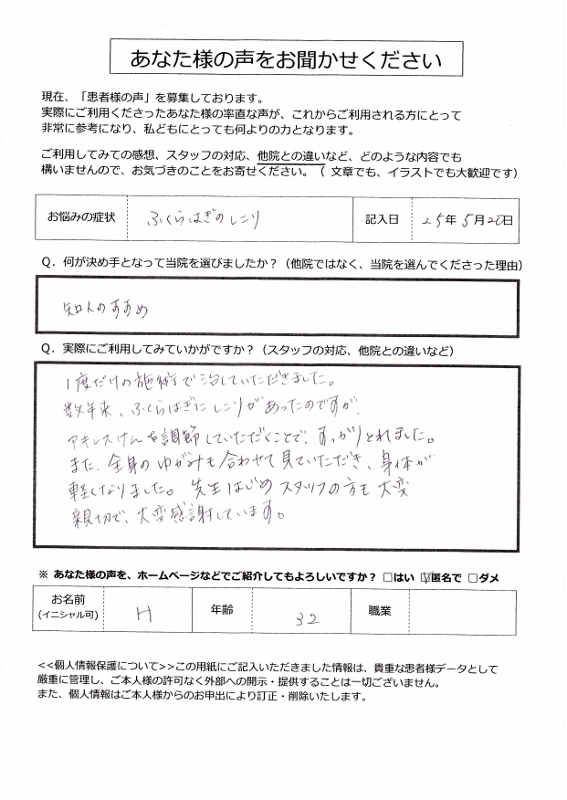 あなた様の声をお聞かせください
現在、「患者様の声」を募集しております。
実際にご利用くださったあなた様の率直な声が、これからご利用される方にとって
非常に参考になり、私どもにとっても何よりの力となります。
ご利用してみての感想、スタッフの対応、他院との違いなど、どのような内容でも
構いませんので、お気づきのことをお寄せください。（ 文章でも、イラストでも大歓迎です）
お悩みの症状 ふくらはぎのしこり 記入日 25年 5月20日
Q．何が決め手となって当院を選びましたか？（他院ではなく、当院を選んでくださった理由）
知人のすすめ
Q．実際にご利用してみていかがですか？（スタッフの対応、他院との違いなど）
1度だけの施術で治していただきました。
数年来、ふくらはぎにしこりがあったのですが、
アキレスけんを調節していただくことで、すっかりとれました。
また、全身のゆがみも合わせて見ていただき、身体が
軽くなりました。先生はじめスタッフの方も大変
親切で、大変感謝しています。
※ あなた様の声を、ホームページなどでご紹介してもよろしいですか？ □はい ☑匿名で □ダメ
お名前 H 年齢 32 職業
(イニシャル可)
<<個人情報保護について>>この用紙にご記入いただきました情報は、貴重な患者様データとして
厳重に管理し、ご本人様の許可なく外部への開示・提供することは一切ございません。
また、個人情報はご本人様からのお申出により訂正・削除いたします。